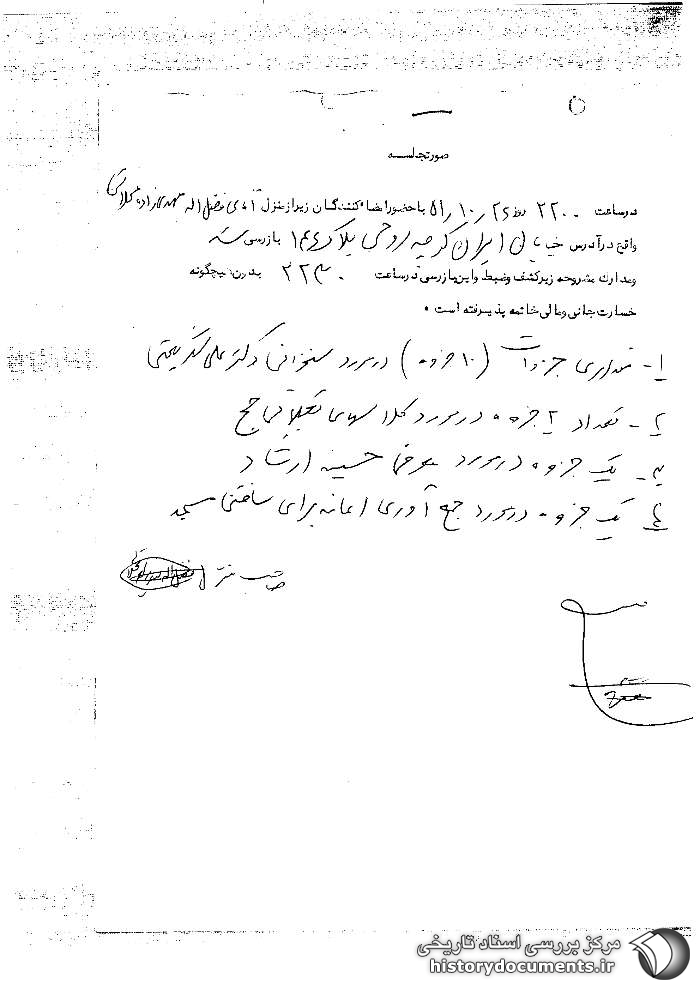 صورتجلسه
در ساعت ۲۲۰۰ روز ۲۶/۱۰/۵۱ با حضور امضاء کنندگان زیر از منزل آقای فضل اله مهدیزاده محلاتی
واقع در آدرس خیابان ایران کوچه روحی پلاک ۱۴۴ بازرسی
و مدارك مشروحه زیر کشف و ضبط و این بازرسی در ساعت ۲۲۳۰ بدون هیچگونه
خسارت جانی و مالی خاتمه پذیرفته است ۰
۱- مقداری جزوات (۱۰ جزوه) در مورد سخنرانی دکتر علی شریعتی
۲- تعداد ۲ جزوه در مورد کلاسهای تعلیماتی حج
۳- یک جزوه در مورد حسینیه ارشاد
۴- یک جزوه در مورد جمع آوری اعانه برای ساختن مسجد
صاحب منزل
مرکز بررسی اسناد تاریخی
historydocuments.ir